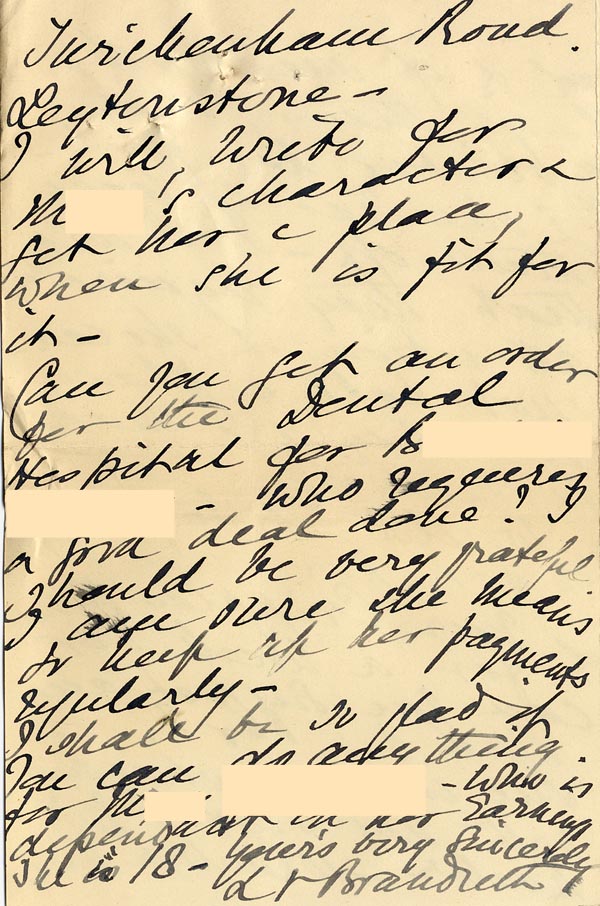 Twickenham Road.
Leytonstone –
I will, write for
M 's character &
get her a place,
when she is fit for
it –
Can you get an order
for the Dental
Hospital for B
– who requires
a good deal done? I
should be very grateful
I am sure she means
to keep up her payments
regularly –
I shall be so glad if
you can do anything
for M – who is
dependent on her Earnings
She is 18 – yours very sincerely
Brandreth